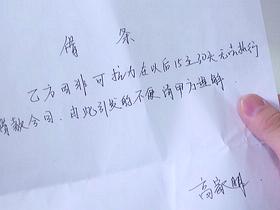 借条
乙方因非可抗力在以后15至30天无法执行
借款合同，由此引发的不便请甲方理解
高